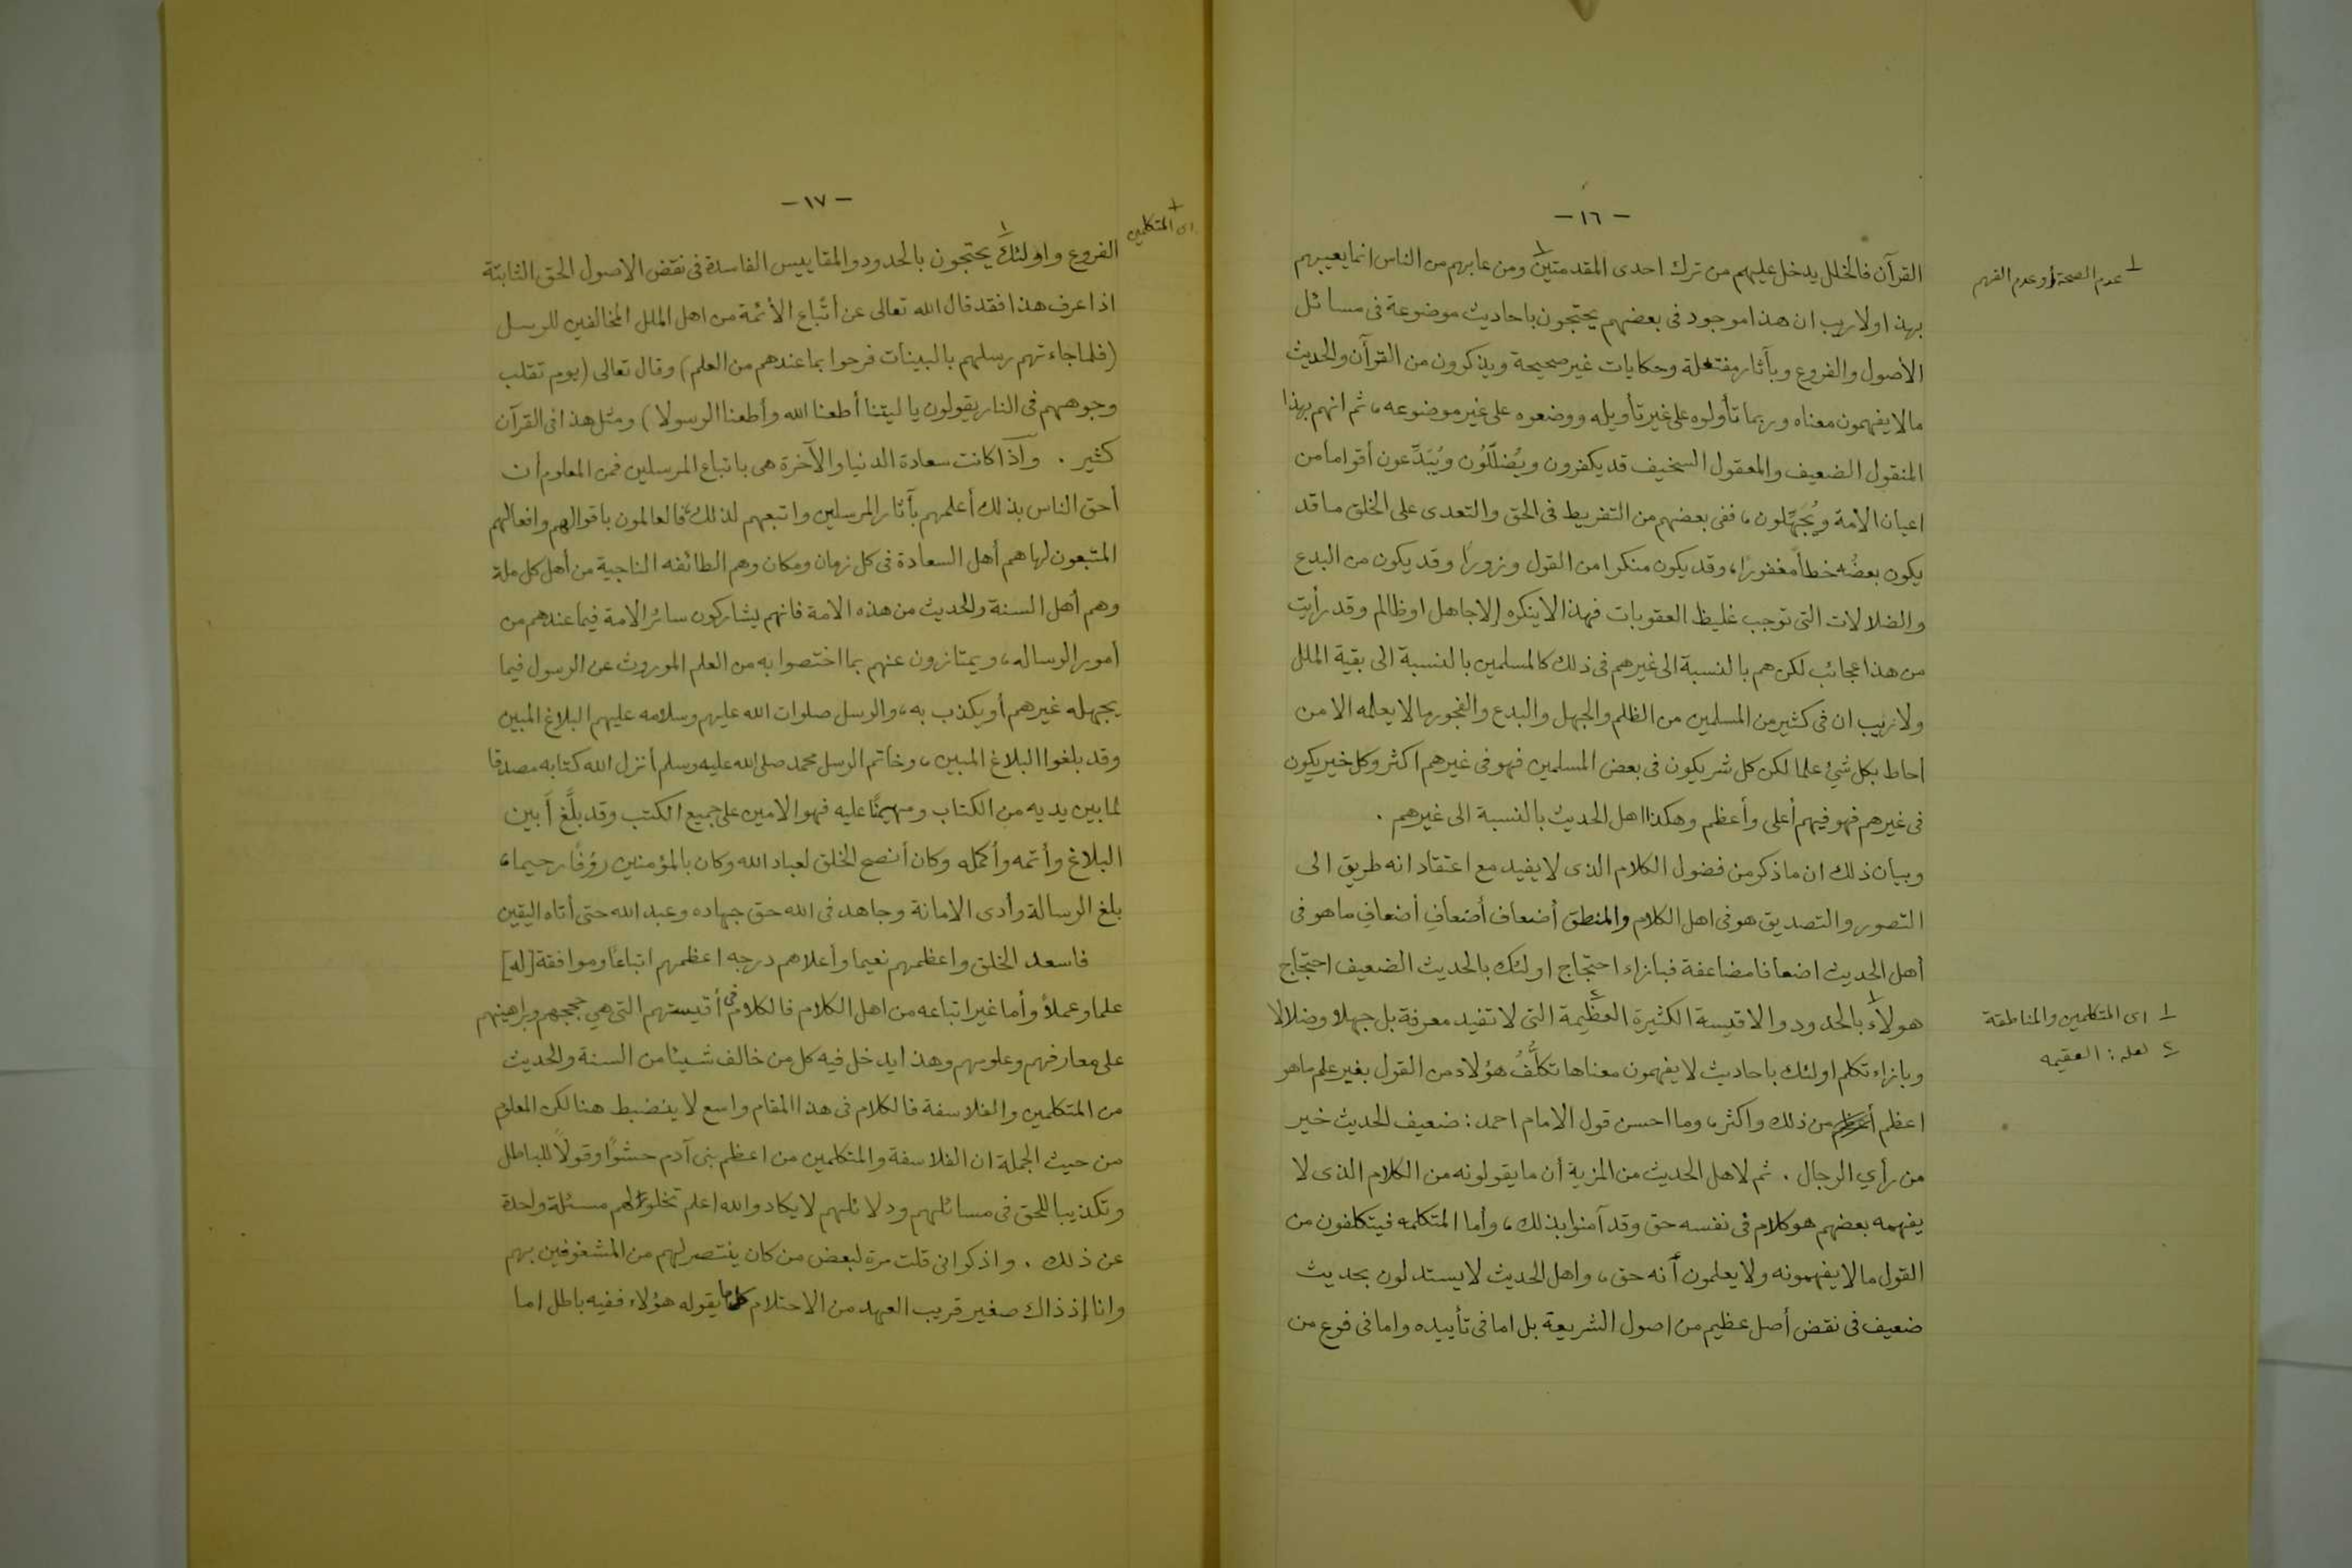 - ١٦ -
القرآن فالخلل يدخل عليهم من ترك احدى المقدمتين١ ومن عابهم من الناس انما يعيبهم
بهذا ولا ريب ان هذا موجود فى بعضهم يحتجون باحاديث موضوعة فى مسائل
الأصول والفروع وبآثار مفتعلة وحكايات غير صحيحة ويذكرون من القرآن والحديث
مالا يفهمون معناه وربما تأولوه على غير تأويله ووضعوه على غير موضوعه، ثم انهم بهذا
المنقول الضعيف والمعقول السخيف قد يكفرون ويُضلّلُون ويُبَدِّعون أقواما من
اعيان الامة ويُجَهّلون، ففى بعضهم من التفريط فى الحق والتعدى على الخلق ما قد
يكون بعضُه خطأً مغفورًا، وقد يكون منكرا من القول وزورًا وقد يكون من البدع
والضلالات التى توجب غليظ العقوبات فهذا لا ينكره إلا جاهل او ظالم وقد رأيت
من هذا عجائب لكن هم بالنسبة الى غيرهم فى ذلك كالمسلمين بالنسبة الى بقية الملل
ولا ريب ان فى كثير من المسلمين من الظلم والجهل والبدع والفجور مالا يعلمه الا من
أحاط بكل شئ علما لكن كل شر يكون فى بعض المسلمين فهو فى غيرهم اكثر وكل خير يكون
فى غيرهم فهو فيهم أعلى وأعظم وهكذا اهل الحديث بالنسبة الى غيرهم .
وبيان ذلك ان ما ذكر من فضول الكلام الذى لا يفيد مع اعتقاد انه طريق الى
التصور والتصديق هو فى اهل الكلام والمنطق أضعاف أضعافِ أضعافِ ما هو فى
أهل الحديث اضعافا مضاعفة فبازاء احتجاج اولئك بالحديث الضعيف احتجاج
هولاء١ بالحدود والاقيسة الكثيرة العظيمة٢ التى لا تفيد معرفة بل جهلا وضلالا
وبازاء تكلم اولئك باحاديث لا يفهمون معناها تكلُّفُ هؤلاء من القول بغير علم ماهو
اعظم من ذلك واكثر، وما احسن قول الامام احمد : ضعيف الحديث خير
من رأي الرجال . ثم لاهل الحديث من المزية أن ما يقولونه من الكلام الذى لا
يفهمه بعضهم هو كلام فى نفسه حق وقد آمنوا بذلك، وأما المتكلمه فيتكلفون من
القول مالا يفهمونه ولا يعلمون أنه حق، واهل الحديث لا يستدلون بحديث
ضعيف فى نقض أصل عظيم من اصول الشريعة بل اما فى تأييده واما فى فرع من
١ عدم الصحة او عدم الفهم
١ اى المتكلمين والمناطقة
٢ لعله : العقيمه
- ١٧ -
الفروع واولئك١ يحتجون بالحدود والمقاييس الفاسدة فى نقض الاصول الحق الثابتة
اذا عرف هذا فقد قال الله تعالى عن أتباع الأئمة من اهل الملل المخالفين للرسل
(فلما جاءتهم رسلهم بالبينات فرحوا بما عندهم من العلم) وقال تعالى (يوم تقلب
وجوههم فى النار يقولون يا ليتنا أطعنا الله وأطعنا الرسولا) ومثل هذا فى القرآن
كثير . واذا كانت سعادة الدنيا والآخرة هى باتباع المرسلين فمن المعلوم أن
أحق الناس بذلك أعلمهم بآثار المرسلين واتبعهم لذلك، فالعالمون باقوالهم وافعالهم
المتبعون لها هم أهل السعادة فى كل زمان ومكان وهم الطائفه الناجية من أهل كل ملة
وهم أهل السنة والحديث من هذه الامة فانهم يشاركون سائر الامة فيما عندهم من
أمور الرساله، ويمتازون عنهم بما اختصوا به من العلم الموروث عن الرسول فيما
يجهله غيرهم أو يكذب به، والرسل صلوات الله عليهم وسلامه عليهم البلاغ المبين
وقد بلغوا البلاغ المبين، وخاتم الرسل محمد صلى الله عليه وسلم أنزل الله كتابه مصدقا
لما بين يديه من الكتاب ومهيمنًا عليه فهو الامين على جميع الكتب وقد بلَّغ أبين
البلاغ وأتمه وأكمله وكان أنصح الخلق لعباد الله وكان بالمؤمنين رؤفًا رحيما،
بلغ الرسالة وأدى الامانة وجاهد فى الله حق جهاده وعبد الله حتى أتاه اليقين
فاسعد الخلق واعظمهم نعيما وأعلاهم درجه اعظمهم اتباعًا وموافقة [له]
علما وعملاً وأما غير اتباعه من اهل الكلام فالكلام فى أقيستهم التى هي حججهم وبراهينهم
على معارفهم وعلومهم وهذا يدخل فيه كل من خالف شيئا من السنة والحديث
من المتكلمين والفلاسفة فالكلام فى هذا المقام واسع لا ينضبط هنا لكن المعلوم
من حيث الجملة ان الفلاسفة والمتكلمين من اعظم بنى آدم حشوًا وقولاً للباطل
وتكذيبا للحق فى مسائلهم ودلائلهم لا يكاد والله اعلم تخلو لهم مسئلة واحدة
عن ذلك . واذكر انى قلت مرة لبعض من كان ينتصر لهم من المشغوفين بهم
وانا إذ ذاك صغير قريب العهد من الاحتلام كل ما يقوله هؤلاء ففيه باطل اما
١ اى المتكلمين